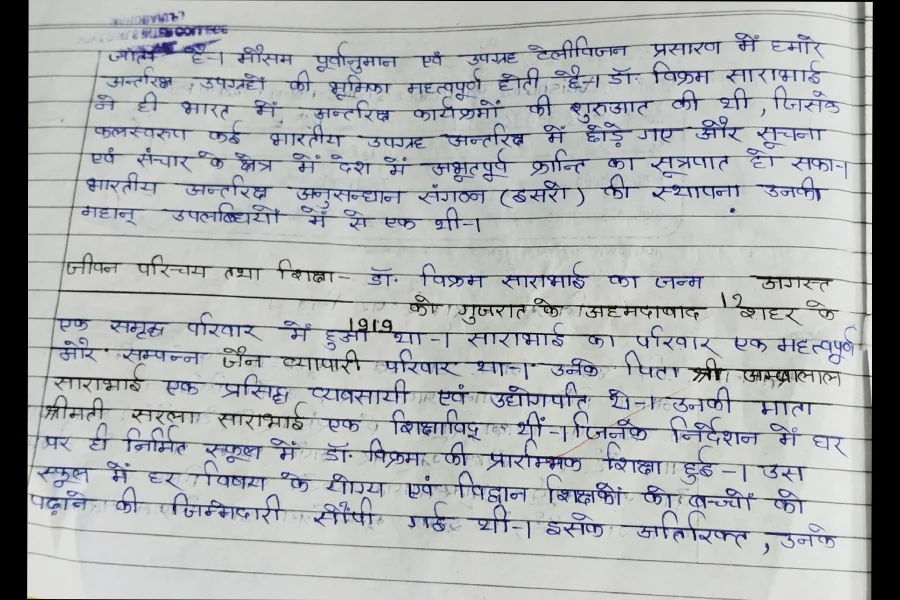 जाता है-। मौसम पूर्वानुमान एवं उपग्रह टेलीविजन प्रसारण में हमारे
अन्तरिक्ष उपग्रहों की भूमिका महत्वपूर्ण होती है-। डॉ. विक्रम साराभाई
ने ही भारत में अन्तरिक्ष कार्यक्रमों की शुरुआत की थी, जिसके
फलस्वरुप कई भारतीय उपग्रह अन्तरिक्ष में छोड़े गए और सूचना
एवं संचार के क्षेत्र में देश में अभूतपूर्व क्रान्ति का सूत्रपात हो सका-।
भारतीय अन्तरिक्ष अनुसन्धान संगठन (इसरो) की स्थापना उनकी
महान् उपलब्धियों में से एक थी-।
जीवन परिचय तथा शिक्षा- डॉ. विक्रम साराभाई का जन्म 12 अगस्त
1919 को गुजरात के अहमदाबाद शहर के
एक समृद्ध परिवार में हुआ था-। साराभाई का परिवार एक महत्वपूर्ण
और सम्पन्न जैन व्यापारी परिवार था-। उनके पिता श्री अम्बालाल
साराभाई एक प्रसिद्ध व्यवसायी एवं उद्योगपति थे-। उनकी माता
श्रीमती सरला साराभाई एक शिक्षाविद् थीं-। जिनके निर्देशन में घर
पर ही निर्मित स्कूल में डॉ. विक्रम की प्रारम्भिक शिक्षा हुई-। उस
स्कूल में हर विषय के योग्य एवं विद्वान शिक्षकों को बच्चों को
पढ़ाने की जिम्मेदारी सौंपी गई थी-। इसके अतिरिक्त, उनके